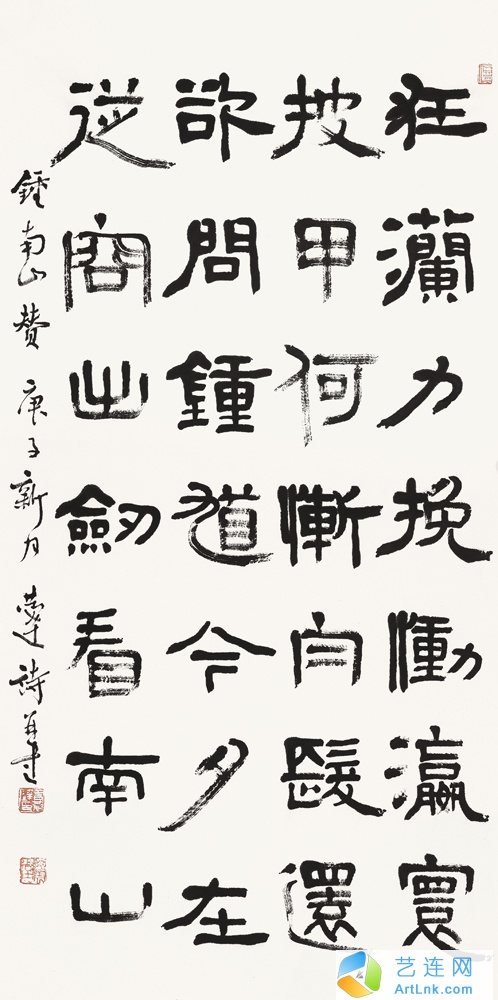 狂瀾力挽慟瀛寰
披甲何慚白髮還
欲問鍾道今夕在
從容出劒看南山
鍾南山贊 庚子新月 詩并書
艺连网
ArtLnk.com